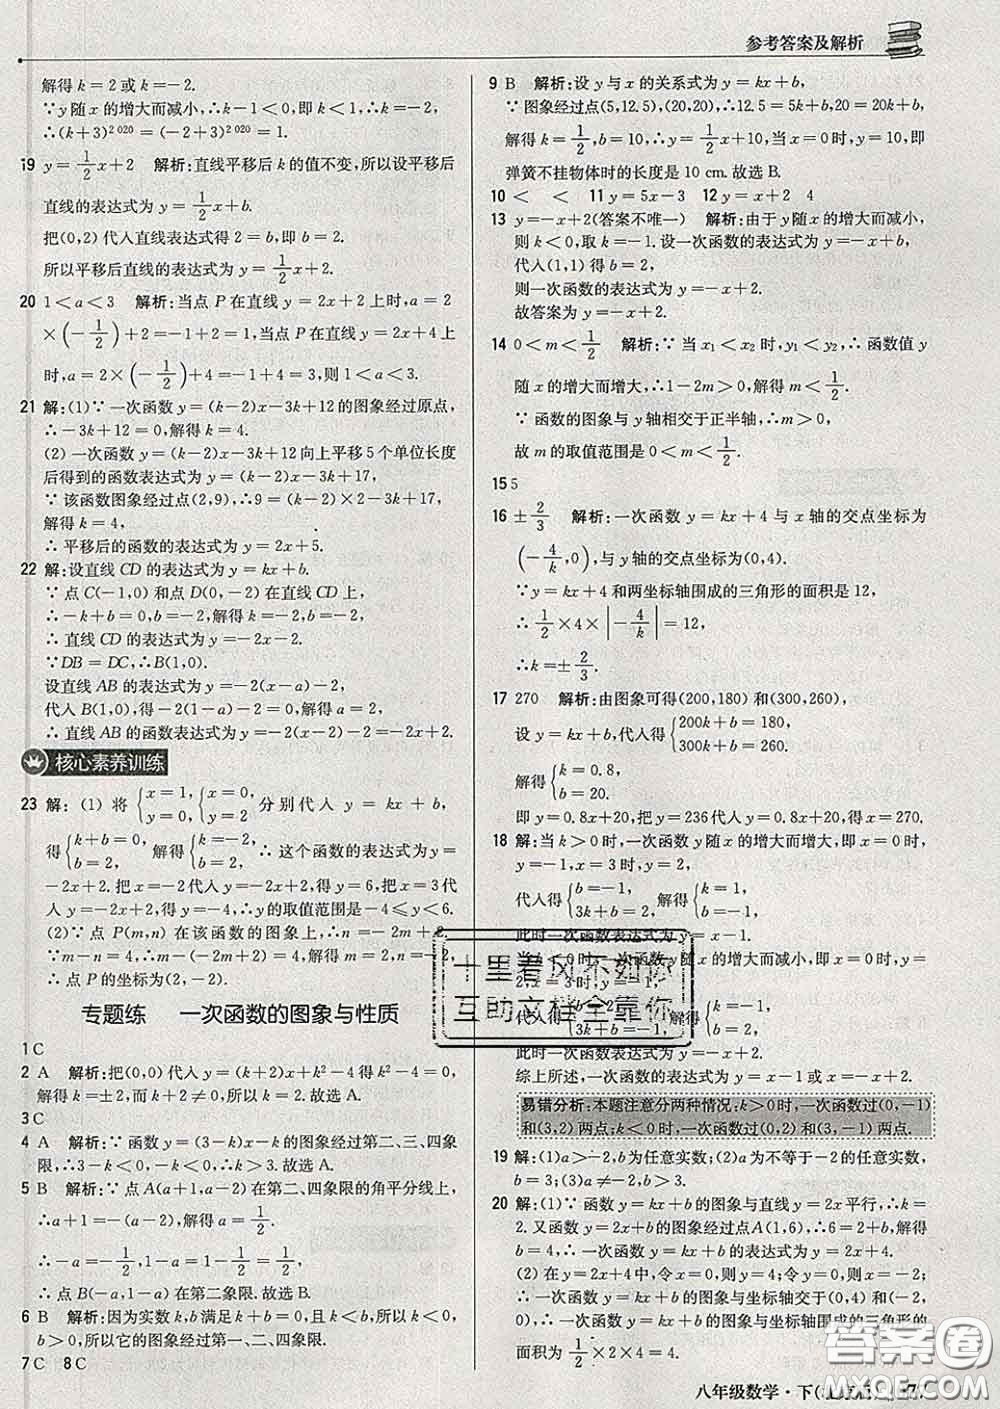 参考答案及解析
解得k=2或k=-2.
∵y随x的增大而减小,∴k-1<0,即k<1,∴k=-2,
∴(k+3)^2 020=(-2+3)^2 020=1.
19 y=1/2x+2 解析:直线平移后k的值不变,所以设平移后
直线的表达式为y=1/2x+b.
把(0,2)代入直线表达式得2=b,即b=2.
所以平移后直线的表达式为y=1/2x+2.
20 1<a<3 解析:当点P在直线y=2x+2上时,a=2
×(-1/2)+2=-1+2=1,当点P在直线y=2x+4上
时,a=2×(-1/2)+4=-1+4=3,则1<a<3.
21 解:(1)∵一次函数y=(k-2)x-3k+12的图象经过原点,
∴-3k+12=0,解得k=4.
(2)一次函数y=(k-2)x-3k+12向上平移5个单位长度
后得到的函数表达式为y=(k-2)x-3k+17,
∵该函数图象经过点(2,9),∴9=(k-2)×2-3k+17,
解得k=4,
∴平移后的函数的表达式为y=2x+5.
22 解:设直线CD的表达式为y=kx+b.
∵点C(-1,0)和点D(0,-2)在直线CD上,
∴-k+b=0,b=-2,解得k=-2,b=-2,
∴直线CD的表达式为y=-2x-2.
∵DB=DC,∴B(1,0).
设直线AB的表达式为y=-2(x-a)-2,
代入B(1,0),得-2(1-a)-2=0,解得a=2,
∴直线AB的函数表达式为y=-2(x-2)-2=-2x+2.
核心素养训练
23 解:(1)将{x=1,y=0,{x=0,y=2分别代入y=kx+b,
得{k+b=0,b=2,解得{k=-2,b=2,∴这个函数的表达式为y=
-2x+2.把x=-2代入y=-2x+2得y=6,把x=3代
入y=-2x+2得y=-4,∴y的取值范围是-4≤y<6.
(2)∵点P(m,n)在该函数的图象上,∴n=-2m+2.
∵m-n=4,∴m-(-2m+2)=4,解得m=2,n=-2,
∴点P的坐标为(2,-2).
专题练 一次函数的图象与性质
1 C
2 A 解析:把(0,0)代入y=(k+2)x+k²-4得k²-4=0,
解得k=±2,而k+2≠0,所以k=2.故选A.
3 C
4 A 解析:∵函数y=(3-k)x-k的图象经过第二、三、四象
限,∴3-k<0,-k<0,解得k>3.故选A.
5 B 解析:∵点A(a+1,a-2)在第二、四象限的角平分线上,
∴a+1=-(a-2),解得a=1/2.
∴-a=-1/2,1-a=1-1/2=1/2,
∴点B(-a,1-a)在第二象限.故选B.
6 B 解析:因为实数k,b满足k+b=0,且k<b,所以k<0,
b>0,所以它的图象经过第一、二、四象限.
7 C 8 C
9 B 解析:设y与x的关系式为y=kx+b,
∵图象经过点(5,12.5),(20,20),∴12.5=5k+b,20=20k+b,
解得k=1/2,b=10,∴y=1/2x+10,当x=0时,y=10,即
弹簧不挂物体时的长度是10 cm.故选B.
10 < < 11 y=5x-3 12 y=x+2 4
13 y=-x+2(答案不唯一) 解析:由于y随x的增大而减小,
则k<0,取k=-1.设一次函数的表达式为y=-x+b,
代入(1,1)得b=2,
则一次函数的表达式为y=-x+2.
故答案为y=-x+2.
14 0<m<1/2 解析:∵当x₁<x₂时,y₁<y₂,∴函数值y
随x的增大而增大,∴1-2m>0,解得m<1/2.
∵函数的图象与y轴相交于正半轴,∴m>0,
故m的取值范围是0<m<1/2.
15 5
16 ±2/3 解析:一次函数y=kx+4与x轴的交点坐标为
(-4/k,0),与y轴的交点坐标为(0,4).
∵y=kx+4和两坐标轴围成的三角形的面积是12,
∴1/2×4×|-4/k|=12,
∴k=±2/3.
17 270 解析:由图象可得(200,180)和(300,260),
设y=kx+b,∴{200k+b=180,300k+b=260.
解得{k=0.8,b=20.
即y=0.8x+20,把y=236代入y=0.8x+20,得x=270.
18 解:当k>0时,一次函数y随x的增大而增大,即x=0时,
y=-1,x=3时,y=2,
代入得{b=-1,3k+b=2,解得{k=1,b=-1,
此时一次函数表达式为y=x-1;
综上所述,一次函数的表达式为y=x-1或y=-x+2.
易错分析:本题注意分两种情况:k>0时,一次函数过(0,-1)
和(3,2)两点;k<0时,一次函数过(0,2)和(3,-1)两点.
19 解:(1)a>-2,b为任意实数;(2)a为不等于-2的任意实数,
b=3;(3)a≠-2,b>3.
20 解:(1)∵函数y=kx+b的图象与直线y=2x平行,∴k=
2.又函数y=2x+b的图象经过点A(1,6),∴6=2+b,b=
4.∴一次函数y=kx+b的表达式为y=2x+4.
(2)在y=2x+4中,令x=0,得y=4;令y=0,得x=-2,
∴一次函数y=kx+b的图象与坐标轴交于(0,4)和(-2,
0),∴一次函数y=kx+b的图象与坐标轴围成的三角形的
面积为1/2×2×4=4.
十里春风不如你
互助文档全靠你
答案圈
MXQE.COM
八年级数学·下